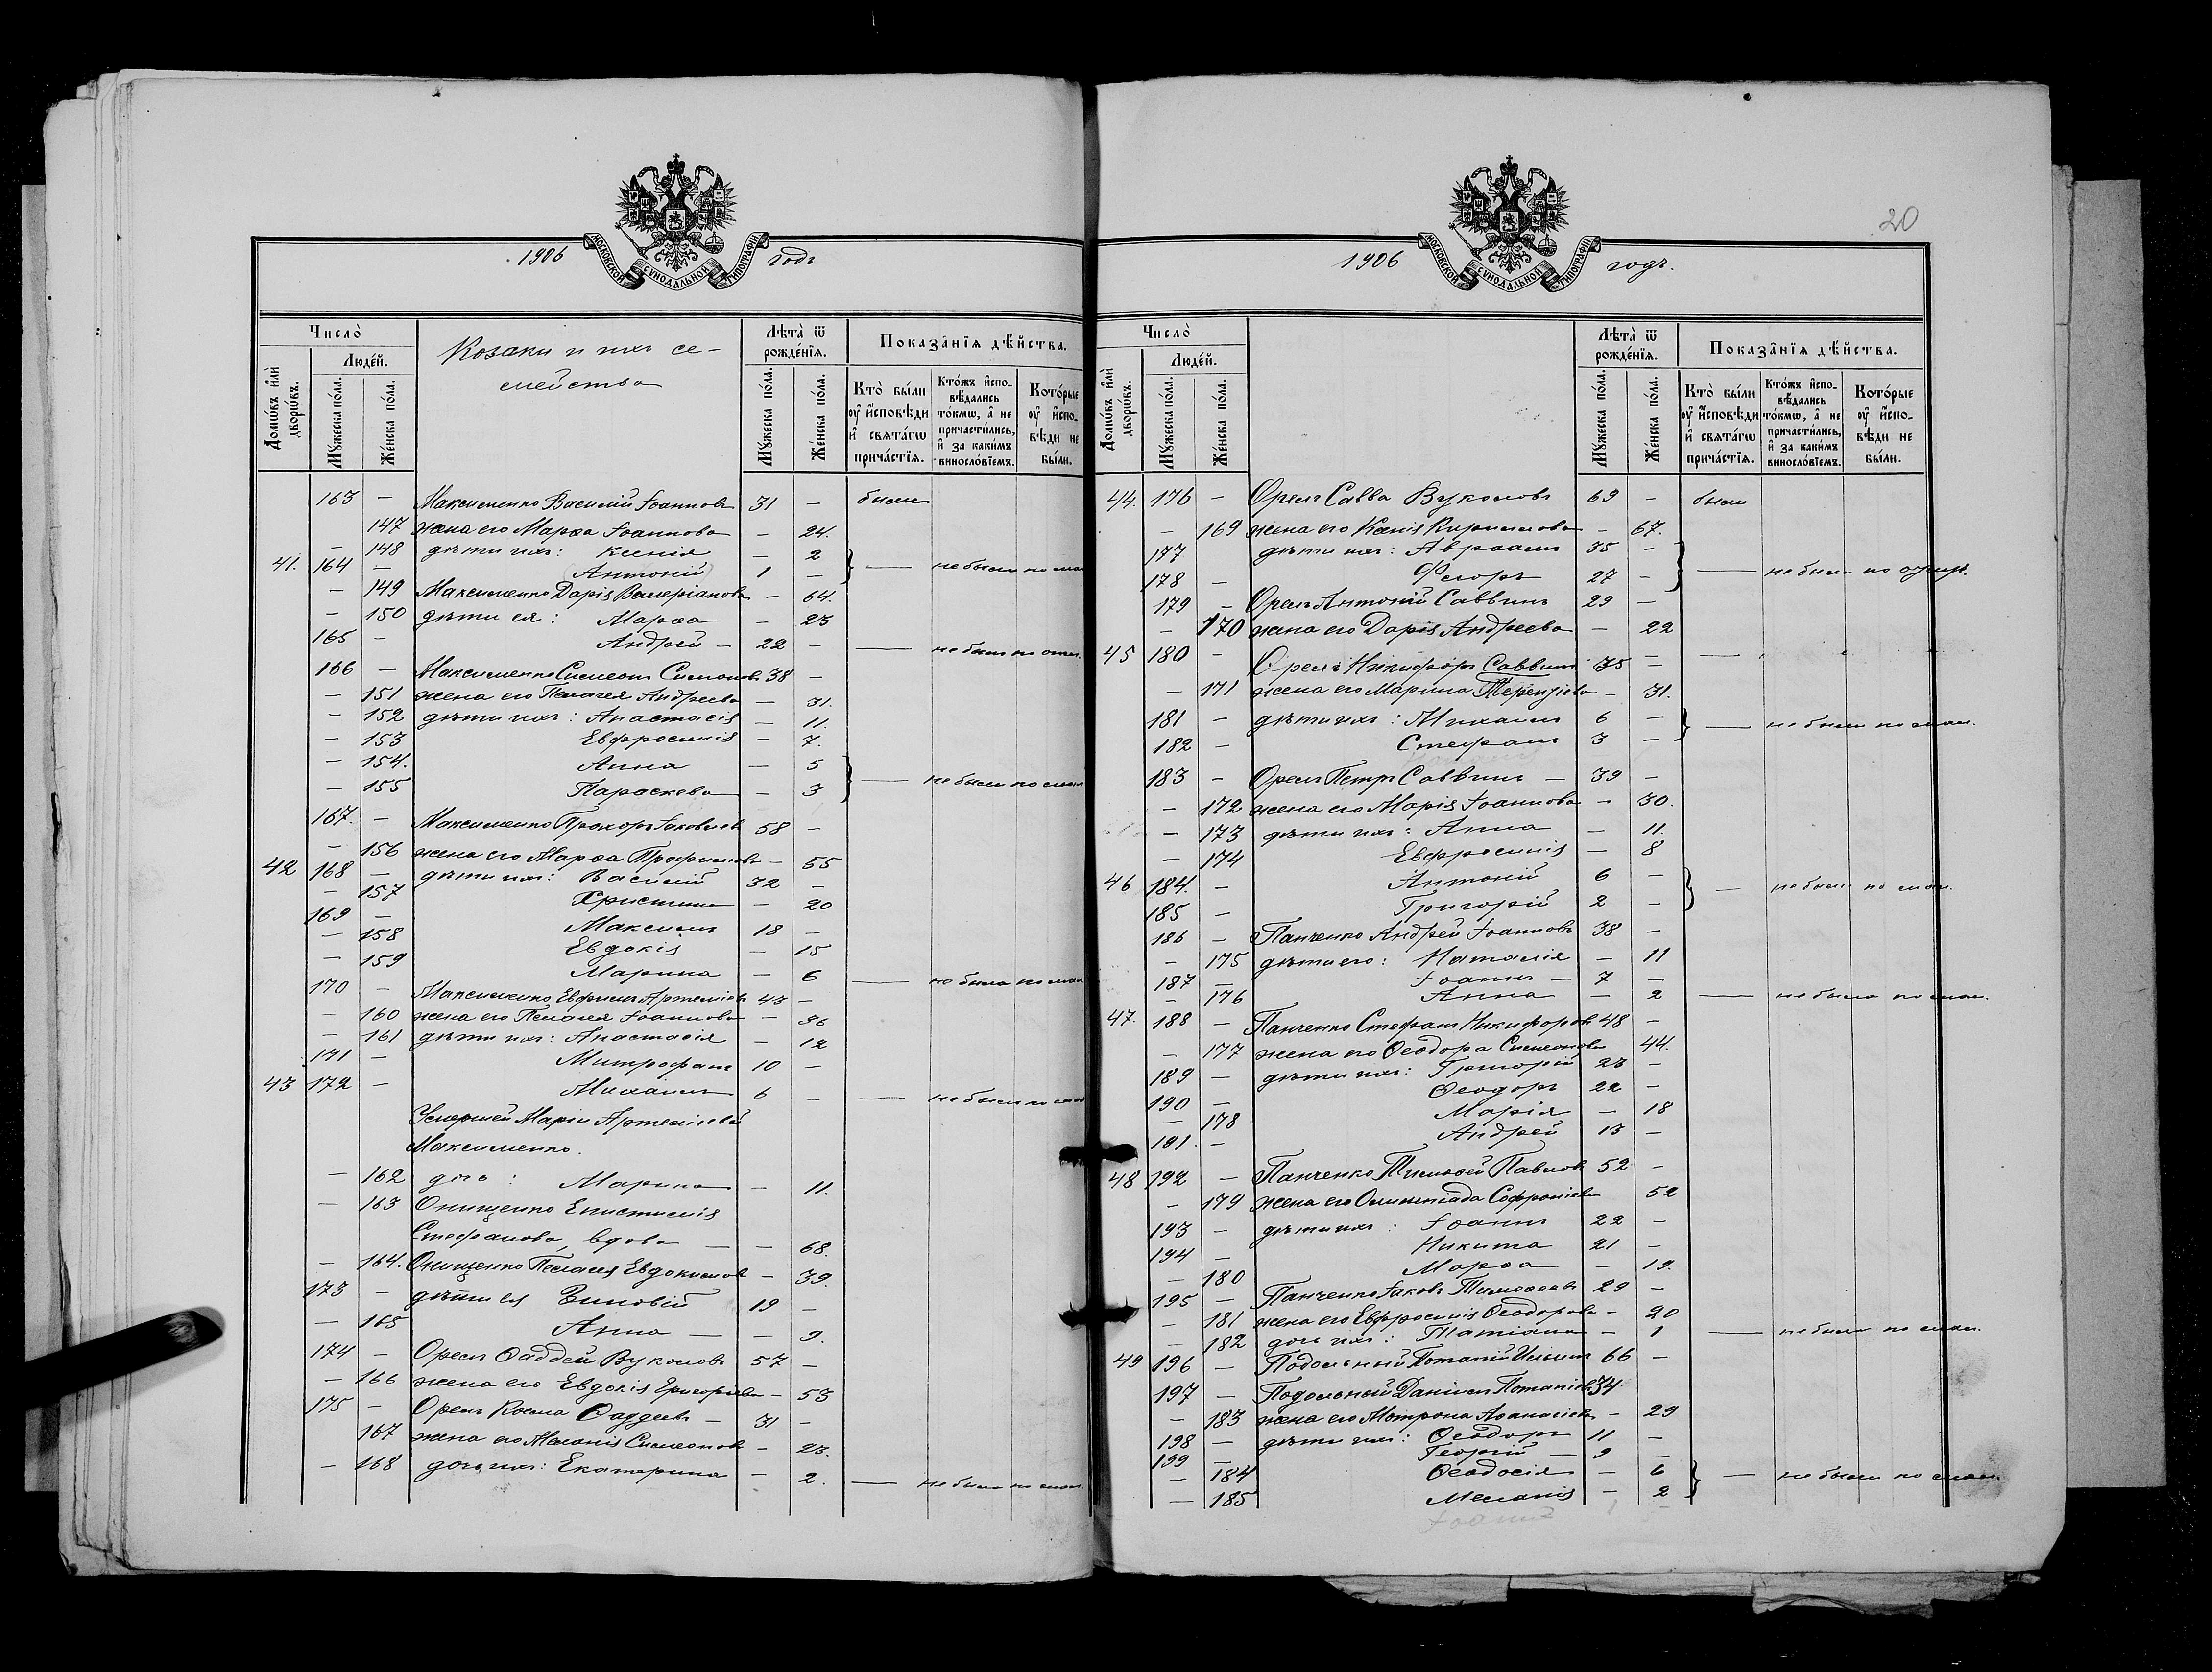 20
1906 годъ
МОСКОВСКОЙ СѴНОДАЛЬНОЙ ТИПОГРАФІИ
Число̀
Домѡ́въ и҆лѝ дворѡ́въ.
Люде́й.
Мꙋ́жеска по́ла.
Же́нска по́ла.
Козаки и ихъ се-
мейства
Лѣта̀ ѿ рожде́нїѧ.
Мꙋ́жеска по́ла.
Же́нска по́ла.
Показа̑нїѧ дѣ́йства.
Кто̀ бы́ли оу҆ и҆́сповѣди и҆ свѧта́гѡ прича́стїѧ.
Кто́жъ и҆спо-вѣ́дались то́кмѡ, а҆ не причасти́лись, и҆ за каки́мъ виносло́вїемъ.
Кото́рые оу҆ и҆́спо-вѣди не бы́ли.
163 — Максименко Василій Іоанновъ 31 — были
147 жена его Марѳа Іоаннова — 24.
— 148 дѣти ихъ: Ксенія — 2
41. 164 — Антоній 1 — } — не были по мал
— 149 Максименко Дарія Валеріанова — 64.
— 150 дѣти ея: Марѳа — 23
165 — Андрей — 22 — — не былъ по отл.
166 — Максименко Симеонъ Симоновъ 38 —
— 151 жена его Пелагея Андреева — 31.
— 152 дѣти ихъ: Анастасія — 11.
— 153 Евфросинія — 7.
— 154. Анна — 5
— 155 Параскева — 3 } — не были по мал
167. — Максименко Прохоръ Іаковлевъ 58 —
— 156 жена его Марѳа Трофимова — 55
42 168 — дѣти ихъ: Василій 32 —
— 157 Христина — 20
169 — Максимъ 18 —
— 158 Евдокія — 15
— 159 Марина — 6 — не была по мал
170 — Максименко Ефимъ Артеміевъ 43 —
— 160 жена его Пелагея Іоаннова — 36
— 161 дѣти ихъ: Анастасія — 12
171 — Митрофанъ 10 —
43 172 — Михаилъ 6 — — не былъ по мал
Умершей Маріи Артеміевой
Максименко.
— 162 дочь: Марина — 11.
— 163 Онищенко Епистимія
Стефанова, вдова — — 68.
— 164. Онищенко Пелагея Евдокимова — 39.
173 — дѣти ея Зиновій 19 —
— 165 Анна — — 9.
174 — Орелъ Ѳаддей Вуколовъ 57 —
— 166 жена его Евдокія Григоріева — 53
175 — Орелъ Косма Ѳаддеевъ — 31 —
167 жена его Меланія Симеонова — 23.
— 168 дочь ихъ: Екатерина — 2. — не была по мал.
1906 годъ.
МОСКОВСКОЙ СѴНОДАЛЬНОЙ ТИПОГРАФІИ
Число̀
Домѡ́въ и҆лѝ дворѡ́въ.
Люде́й.
Мꙋ́жеска по́ла.
Же́нска по́ла.
Лѣта̀ ѿ рожде́нїѧ.
Мꙋ́жеска по́ла.
Же́нска по́ла.
Показа̑нїѧ дѣ́йства.
Кто̀ бы́ли оу҆ и҆́сповѣди и҆ свѧта́гѡ прича́стїѧ.
Кто́жъ и҆спо-вѣ́дались то́кмѡ, а҆ не причасти́лись, и҆ за каки́мъ виносло́вїемъ.
Кото́рые оу҆ и҆́спо-вѣди не бы́ли.
44. 176 — Орелъ Савва Вуколовъ 69 — были
— 169 жена его Ксенія Кириллова — 67.
177 дѣти ихъ: Авраамъ 35 —
178 — Флоръ 27 — } — не были по
179 — Орелъ Антоній Саввинъ 29 —
— 170 жена его Дарія Андреева — 22
45 180 — Орелъ Никифоръ Саввинъ 35 —
— 171 жена его Марина Терентіева — 31.
181 — дѣти ихъ: Михаилъ 6 —
182 — Стефанъ 3 — } — не были по мал.
183 — Орелъ Петръ Саввинъ — 39 —
— 172 жена его Марія Іоаннова — 30.
— 173 дѣти ихъ: Анна — 11.
— 174 Евфросинія — 8
46 184. — Антоній 6 —
185 — Григорій 2 — } — не были по мал.
186 — Панченко Андрей Іоанновъ 38 —
— 175 дѣти его: Наталія — 11
187 — Іоаннъ — 7 —
— 176 Анна — 2 — не была по мал.
47. 188 — Панченко Стефанъ Никифоровъ 48 —
— 177 жена его Ѳеодора Симеонова 44.
189 — дѣти ихъ: Григорій 23 —
190 — Ѳеодоръ 22 —
— 178 Марія — 18
191. — Андрей 13 —
48 192 — Панченко Тимоѳей Павловъ 52 —
— 179 жена его Олимпіада Софроніева 52
193 — дѣти ихъ: Іоаннъ 22 —
194 — Никита 21 —
— 180 Марѳа — 19.
195 — Панченко Іаковъ Тимоѳеевъ 29 —
— 181 жена его Евфросинія Ѳеодорова — 20
— 182 дочь ихъ: Татіана — 1 — не была по мал.
49 196 — Подольный Потапій Ильинъ 66 —
197 — Подольный Даніилъ Потапіевъ 34.
— 183 жена его Мотрона Аѳанасіева — 29
198 — дѣти ихъ: Ѳеодоръ 11 —
199 — Георгій — 9 —
— 184 Ѳеодосія — 6
— 185 Меланія — 2 } — не были по мал.
Іоаннъ